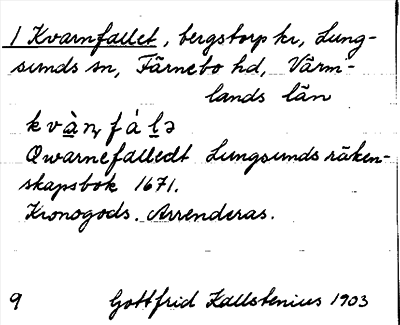 1 Kvarnfallet, bergstorp kr, Lung-
sunds sn, Färnebo hd, Värm-
lands län
k v à̲ ɳ f á l̲ ə
Qwarnefalledt Lungsunds räken-
skapsbok 1671.
Kronogods. Arrenderas.
9 Gottfrid Kallstenius 1903